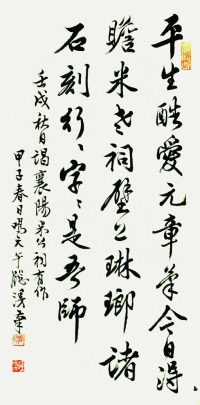 平生酷愛元章筆今日得
瞻米老祠壁上琳瑯諸
石刻行〻字〻是吾師
壬戌秋日謁襄陽米公祠有作
甲子春日晴天午